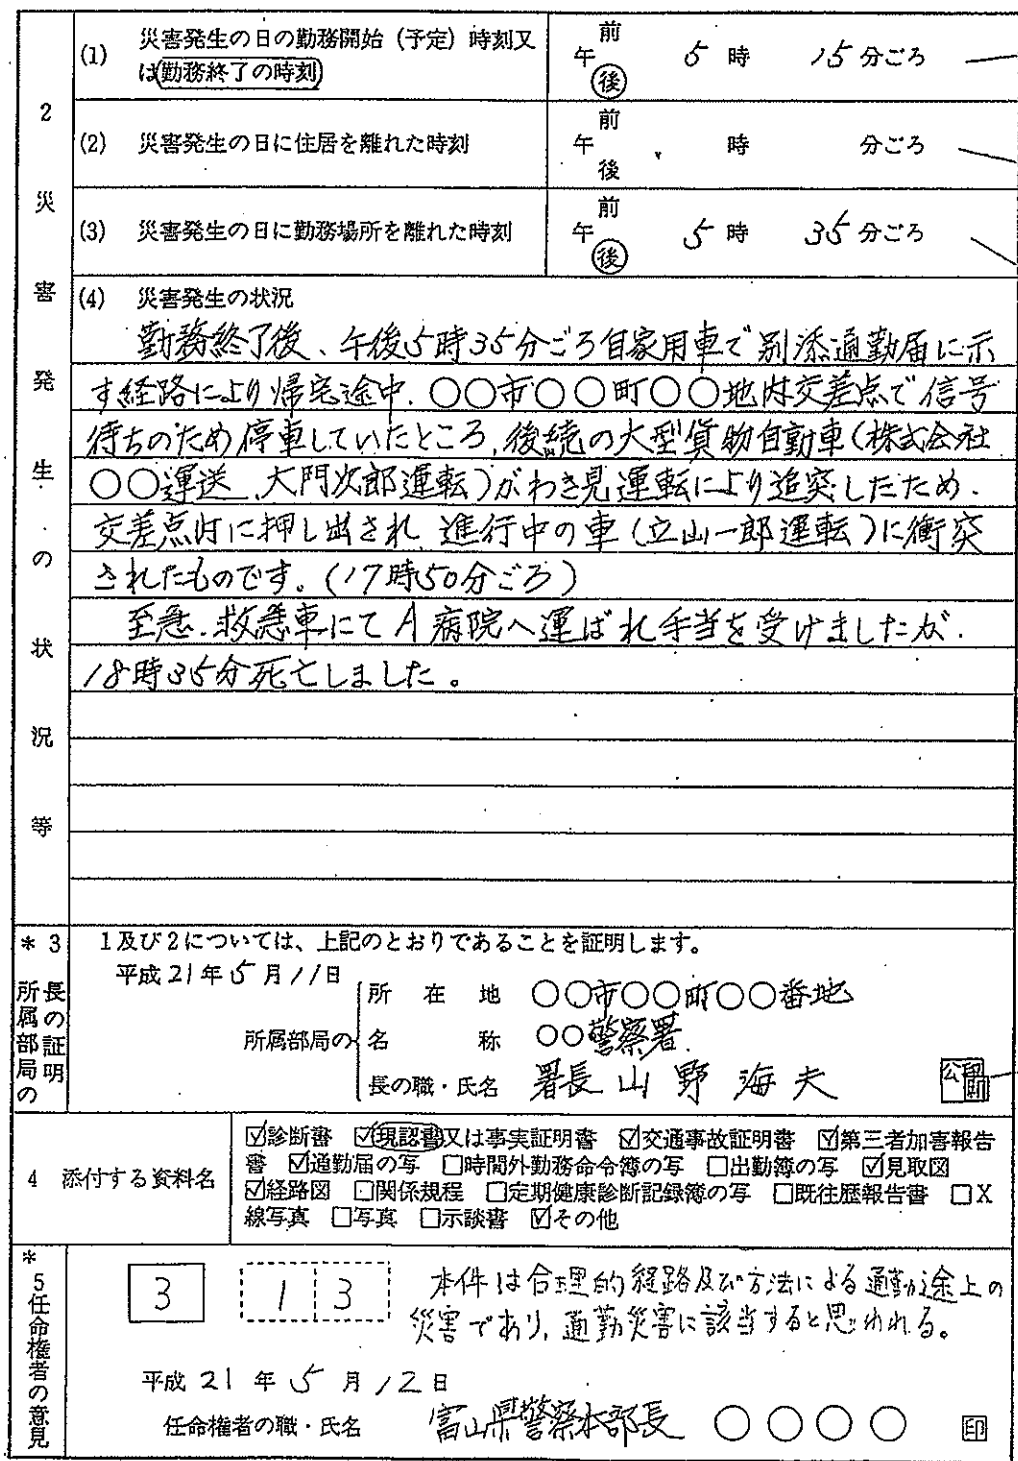 2 災害発生の状況等
(1) 災害発生の日の勤務開始（予定）時刻又
は勤務終了の時刻
午 前 後 5 時 15 分ごろ
(2) 災害発生の日に住居を離れた時刻
午 前 後 時 分ごろ
(3) 災害発生の日に勤務場所を離れた時刻
午 前 後 5 時 35 分ごろ
(4) 災害発生の状況
勤務終了後、午後5時35分ごろ自家用車で別添通勤届に示
す経路により帰宅途中、〇〇市〇〇町〇〇地内交差点で信号
待ちのため停車していたところ、後続の大型貨物自動車(株式会社
〇〇運送、大門次郎運転)がわき見運転により追突したため、
交差点内に押し出され、進行中の車(立山一郎運転)に衝突
されたものです。(17時50分ごろ)
至急、救急車にてA病院へ運ばれ手当を受けましたが、
18時35分死亡しました。
＊3 所属部局の長の証明
1及び2については、上記のとおりであることを証明します。
平成21年5月11日
所属部局の
所在地 〇〇市〇〇町〇〇番地
名称 〇〇警察署
長の職・氏名 署長 山野海夫 公印
4 添付する資料名
☑診断書 ☑現認書又は事実証明書 ☑交通事故証明書 ☑第三者加害報告
書 ☑通勤届の写 □時間外勤務命令簿の写 □出勤簿の写 ☑見取図
☑経路図 □関係規程 □定期健康診断記録簿の写 □既往歴報告書 □X
線写真 □写真 □示談書 ☑その他
＊5 任命権者の意見
3 1 3
本件は合理的経路及び方法による通勤途上の
災害であり、通勤災害に該当すると思われる。
平成21年5月12日
任命権者の職・氏名 富山県警察本部長 〇〇〇〇 印